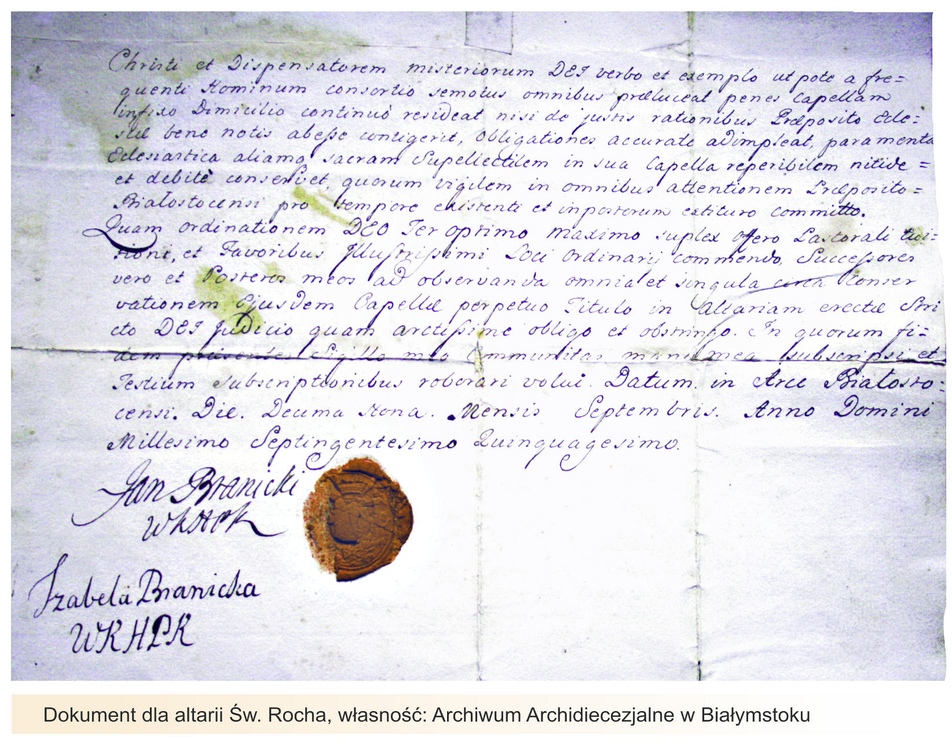 Christi et Dispensatorem misteriorum DEI verbo et exemplo ut pote a fre=
quenti Hominum consortio semotus omnibus præluceat penes Capellam
infixo Dimicilio continuò resideat nisi de justis rationibus Præposito Ecle=
siæ bene notis abesse contigerit, obligationes accurate adimpleat, paramenta
Eclesiastica aliamq sacram Supellectilem in sua Capella reperibilem nitide=
et debitè conservet, quorum vigilem in omnibus attentionem Præposito=
Białostocensi pro tempore existenti et inposterum extituro committo.
Quam ordinationem DEO Ter optimo maximo suplex offero Pastorali
et Favoribus Illustrissimi Loci Ordinarii commendo. Successores
vero et Posteros meos ad observanda omnia et singula circa Conser
vationem Ejusdem Capellæ perpetuo Titulo in Altariam erectæ Stri
cto DEI Judicio quam arctissime obligo et obstringo. In quorum fi=
dem præsentes Sigillo meo Communitas manu mea subscripsi et
Testium subscriptionibus roborari volui. Datum in Arce Białosto=
censi. Die. Decima Nona. Mensis Septembris. Anno Domini
Millesimo Septingentesimo Quinquagesimo.
Jan Branicki
WKHPK
Izabela Branicka
WKHPK
Dokument dla altarii Św. Rocha, własność: Archiwum Archidiecezjalne w Białymstoku